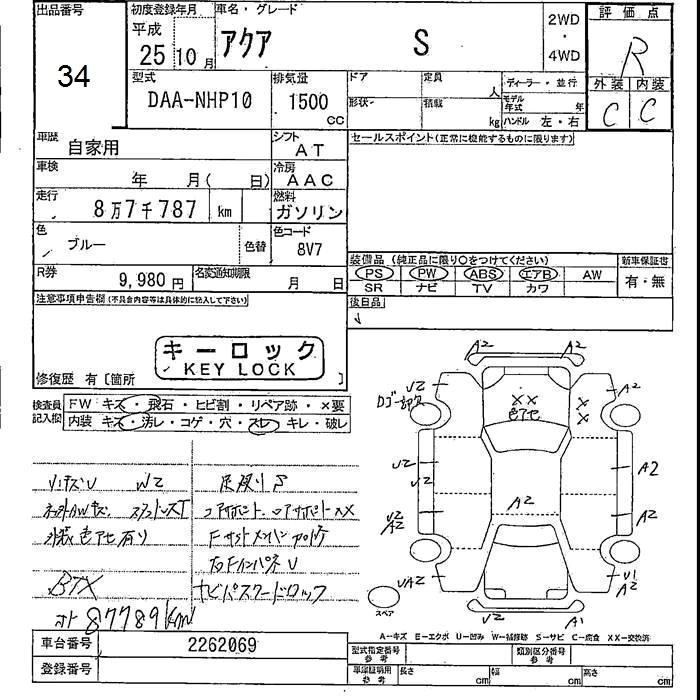 出品番号
34
初度登録年月
平成
25 10月
車名・グレード
アクア S
2WD
・
4WD
評価点
R
外装 内装
C C
型式
DAA-NHP10
排気量
1500
CC
ドア
定員
人
形状
積載
kg
ディーラー・並行
モデル年式 年
ハンドル 左・右
車歴
自家用
シフト
AT
セールスポイント(正常に機能するものに限ります)
車検
年 月( 日)
冷房
AAC
走行
8万7千787 km
燃料
ガソリン
色
ブルー
色替
色コード
8V7
装備品 (純正品に限り○をつけてください)
新車保証書
PS PW ABS エアB AW
有・無
SR ナビ TV カワ
R券
9,980 円
名変通知期限
月 日
後日品
注意事項申告欄(不具合内容等は具体的に記入して下さい)
キーロック
KEY LOCK
修復歴 有〔箇所 〕
検査員記入欄
FW キズ・飛石・ヒビ割・リペア跡・×要
内装 キズ・汚レ・コゲ・穴・スレ・キレ・破レ
小キズU W2
足廻りS
コアサポート XX
外装色アセ有り
ナビパスワードロック
BTX
87789km
A2 A2
U2 A2
XX
色アセ
X
X
U2 A2
U2
A2
U2
A2
A2
UA2 U1
A2
スペア
U2 A1
A-キズ E-エクボ U-凹み W-補修跡 S-サビ C-腐食 XX-交換済
車台番号
2262069
登録番号
型式指定番号
参考
類別区分番号
参考
車庫証明用
参考
長さ cm 幅 cm 高さ cm